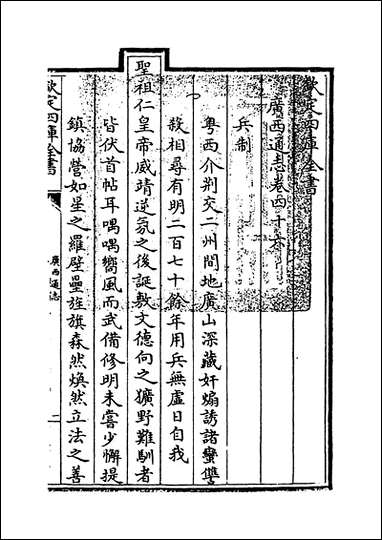 欽定四庫全書
廣西通志卷四十六
兵制
粵西介荆交二州間地廣山深藏奸煽誘諸蠻讐
殺相尋有明二百七十餘年用兵無虛日自我
聖祖仁皇帝威靖逆氛之後誕敷文德向之獷野難馴者
皆伏首帖耳喁喁嚮風而武備修明未嘗少懈提
鎮協營如星之羅壁壘旌旗森然煥然立法之善
欽定四庫全書
廣西通志